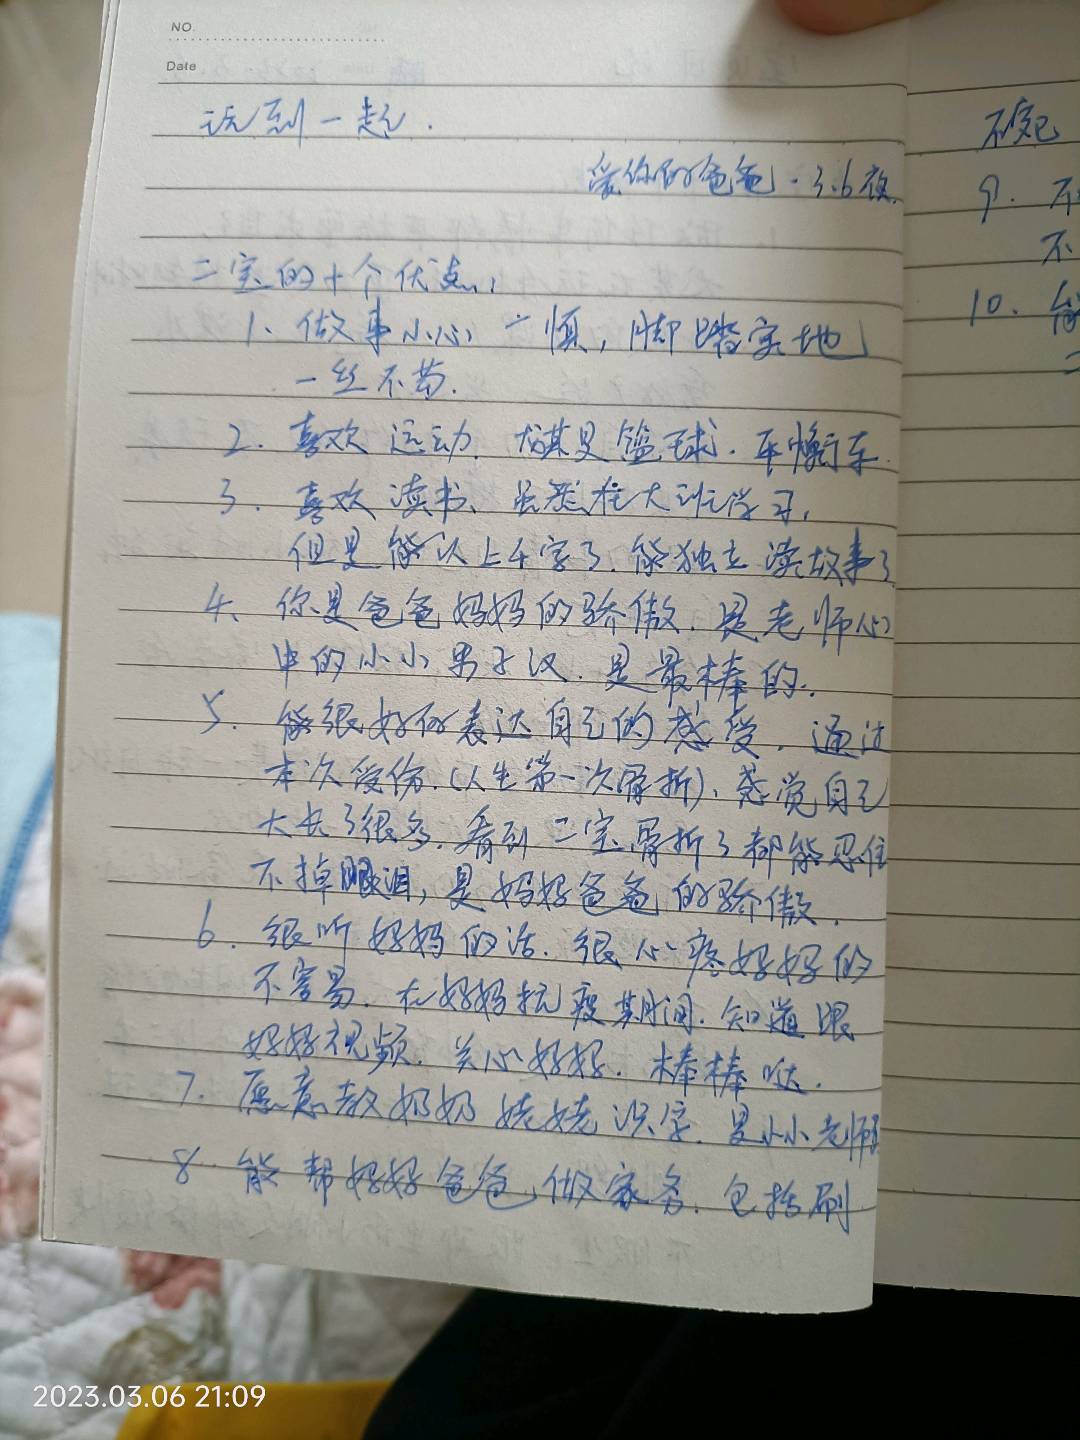 NO.
Date
玩到一起.
爱你的爸爸.3.6夜.
二宝的十个优点:
1. 做事小心, 慎, 脚踏实地
一丝不苟.
2. 喜欢运动. 尤其是篮球. 平衡车.
3. 喜欢读书、虽然在大班学习,
但是能认上千字了. 能独立读故事了
4. 你是爸爸妈妈的骄傲. 是老师心
中的小小男子汉. 是最棒的.
5. 能很好的表达自己的感受. 通过
本次受伤.(人生第一次骨折), 感觉自己
大长了很多. 看到二宝骨折了都能忍住
不掉眼泪, 是妈妈爸爸的骄傲.
6. 很听妈妈的话. 很心疼妈妈的
不容易. 在妈妈抗疫期间. 知道跟
妈妈视频. 关心妈妈. 棒棒哒.
7. 愿意教奶奶姥姥识字. 是小小老师
8. 能帮妈妈爸爸做家务. 包括刷
9. 不
不
10. 能
2023.03.06 21:09